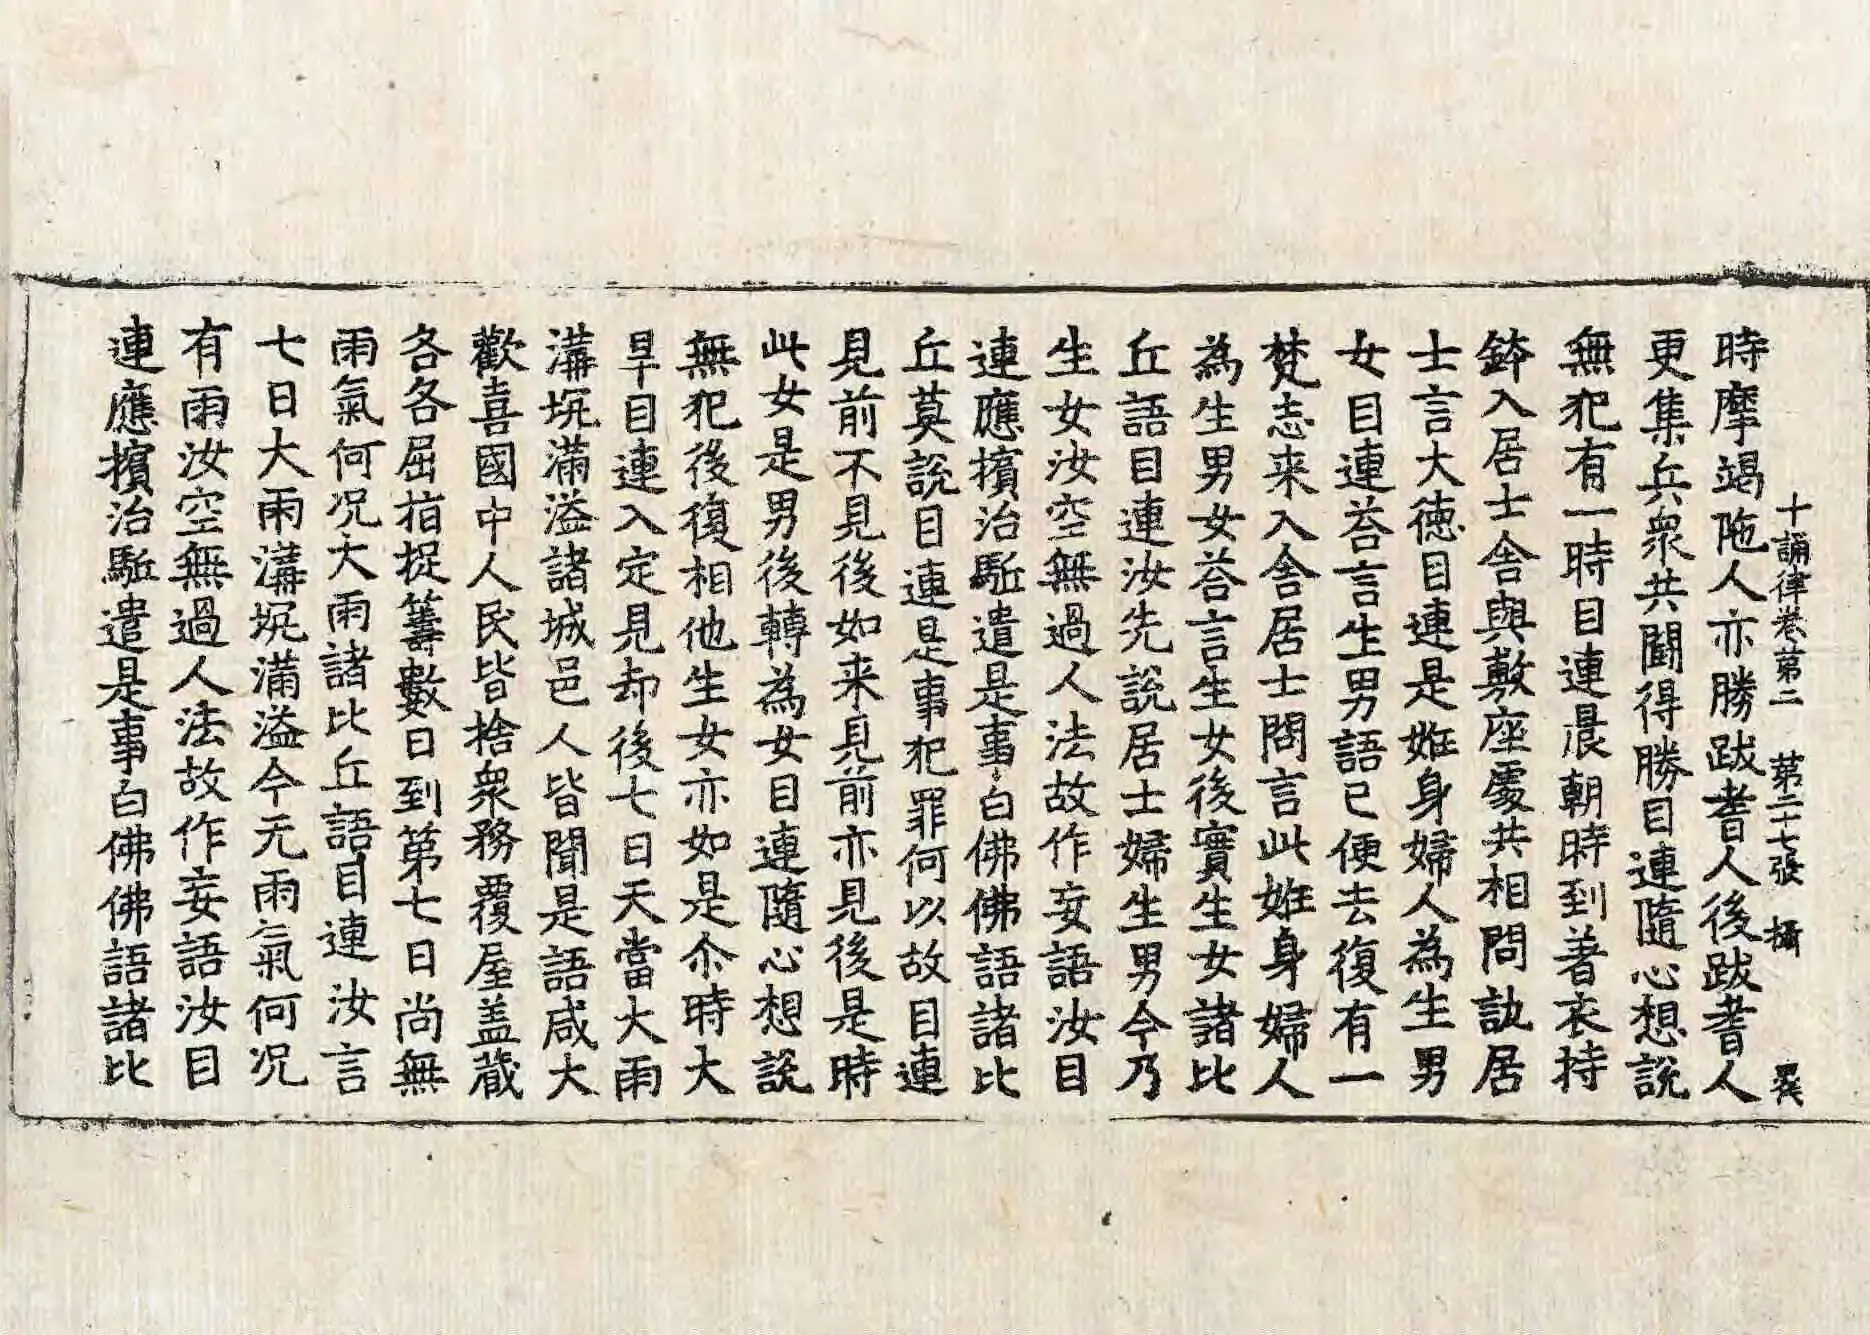 十誦律卷第二　第二十七張　攝
時摩竭陁人亦勝跋耆人後跋耆人
更集兵衆共鬪得勝目連隨心想說
無犯有一時目連晨朝時到著衣持
鉢入居士舍與敷座處共相問訊居
士言大德目連是姙身婦人為生男
女目連荅言生男語已便去復有一
梵志来入舍居士問言此姙身婦人
為生男女荅言生女後實生女諸比
丘語目連汝先說居士婦生男今乃
生女汝空無過人法故作妄語汝目
連應擯治驅遣是事白佛佛語諸比
丘莫說目連是事犯罪何以故目連
見前不見後如来見前亦見後是時
此女是男後轉為女目連隨心想說
無犯後復相他生女亦如是尒時大
旱目連入定見却後七日天當大雨
溝坑滿溢諸城邑人皆聞是語咸大
歡喜國中人民皆捨衆務覆屋盖蔵
各各屈指捉籌數日到第七日尚無
雨氣何况大雨諸比丘語目連汝言
七日大雨溝坑滿溢今无雨氣何况
有雨汝空無過人法故作妄語汝目
連應擯治驅遣是事白佛佛語諸比